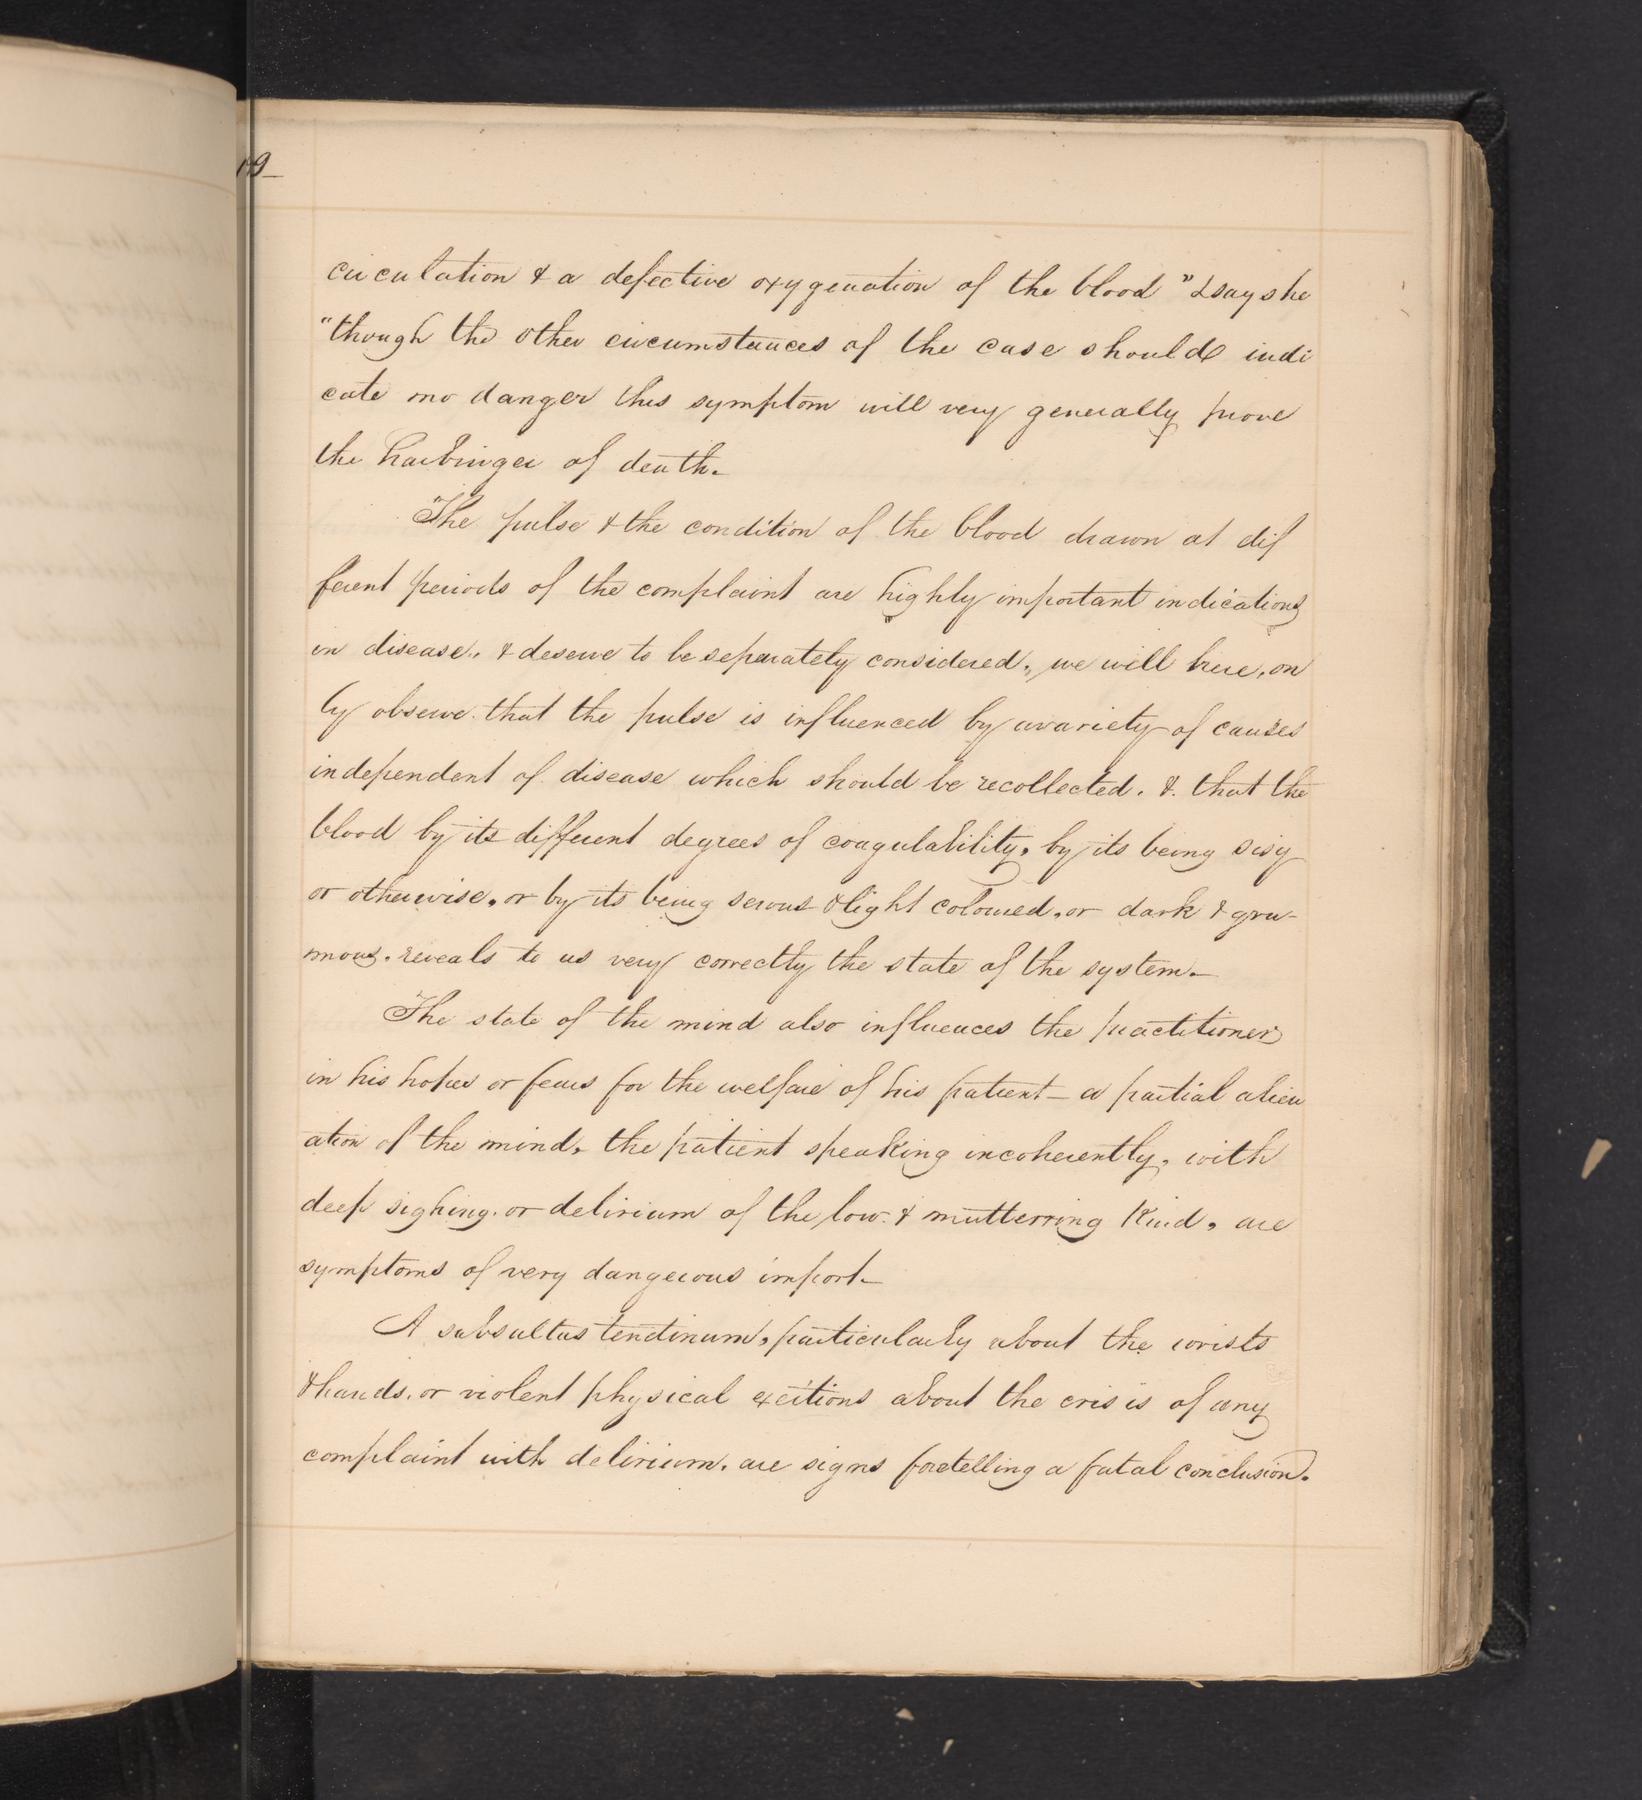 circulation & a defective oxygenation of the blood" & says he
"though the other circumstances of the case should indi
cate no danger this symptom will very generally prove
the harbinger of death.
The pulse & the condition of the blood drawn at dif
ferent periods of the complaint are highly important indications
in disease, & deserve to be separately considered, we will here, on
ly observe that the pulse is influenced by a variety of causes
independent of disease which should be recollected. & that the
blood by its different degrees of coagulability, by its being sisy
or otherwise, or by its being serous & light coloured, or dark & gru-
mous, reveals to us very correctly the state of the system.
The state of the mind also influences the practitioner
in his hopes or fears for the welfare of his patient — a partial alien
ation of the mind, the patient speaking incoherently, with
deep sighing, or delirium of the low & mutterring kind, are
symptoms of very dangerous import.
A subsultus tendinum, particularly about the wrists
& hands, or violent physical exertions about the crisis of any
complaint with delirium, are signs foretelling a fatal conclusion.